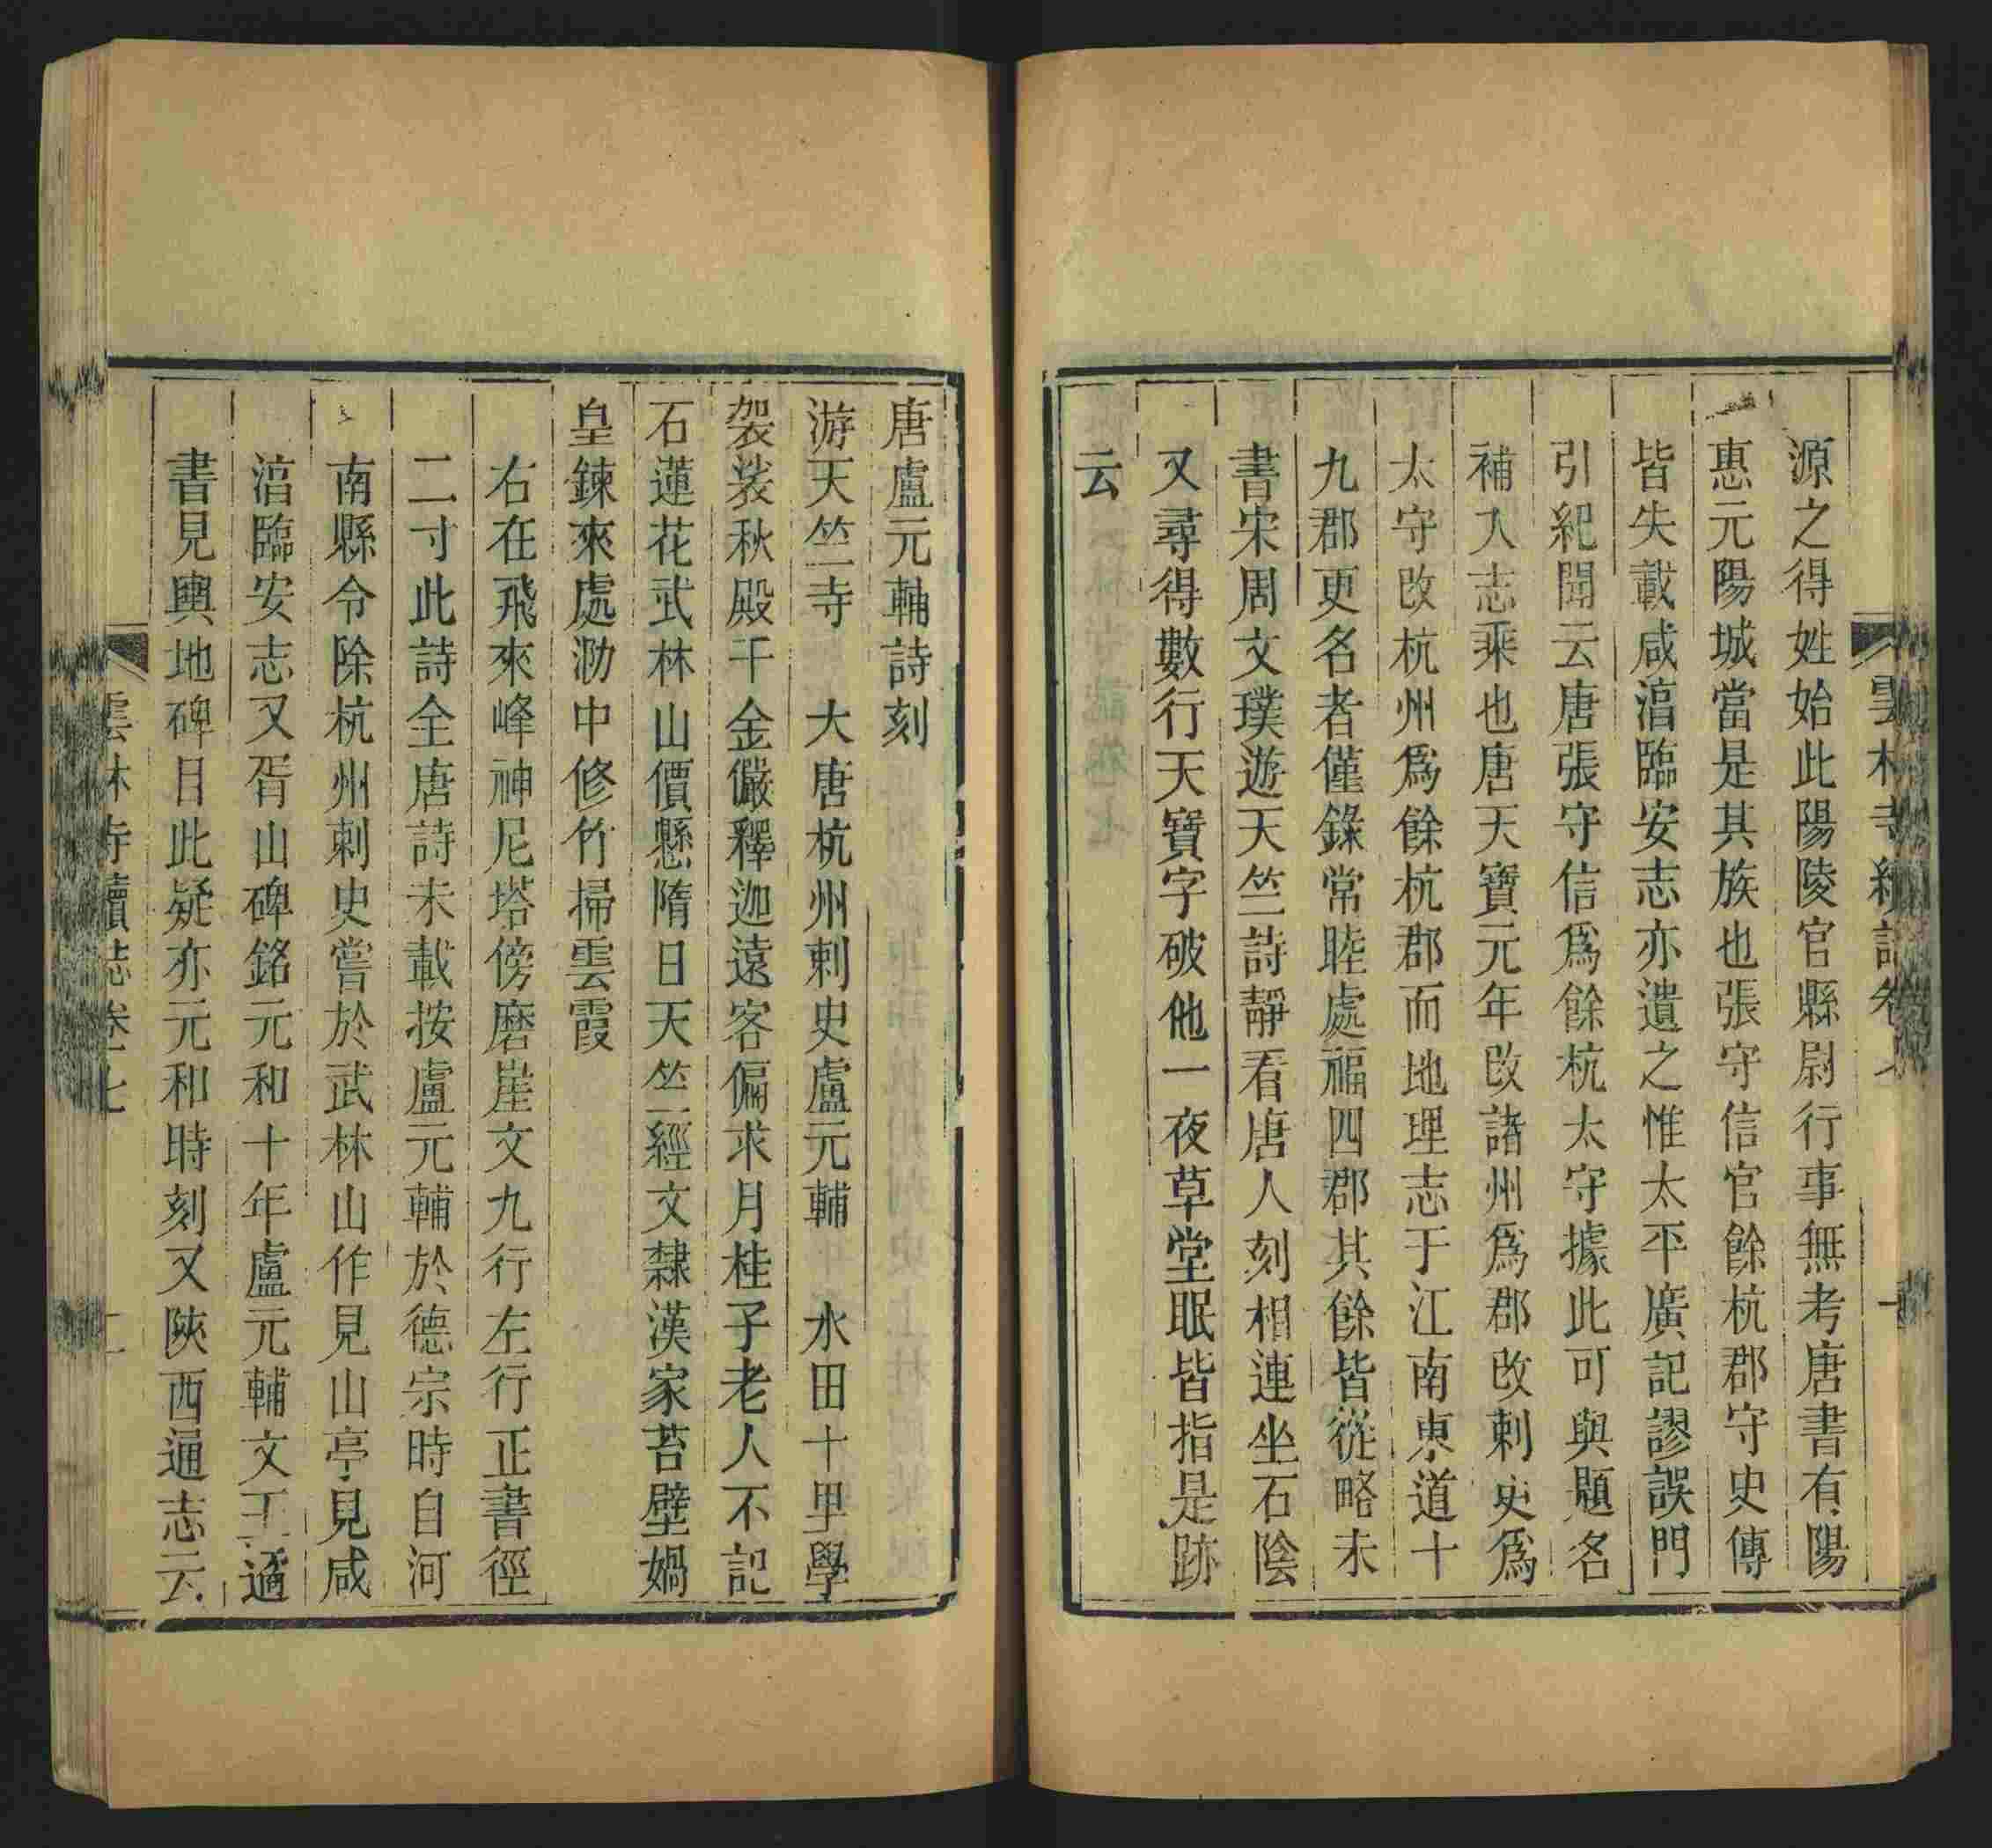 雲林寺續誌卷七
源之得姓始此陽陵官縣尉行事無考唐書有陽
惠元陽城當是其族也張守信官餘杭郡守史傳
皆失載咸淳臨安志亦遺之惟太平廣記謬誤門
引紀聞云唐張守信爲餘杭太守據此可與題名
補入志乘也唐天寶元年改諸州爲郡改刺史爲
太守改杭州爲餘杭郡而地理志于江南東道十
九郡更名者僅錄常睦處福四郡其餘皆從略未
書宋周文璞遊天竺詩靜看唐人刻相連坐石陰
又尋得數行天寶字破他一夜草堂眠皆指是跡
云
唐盧元輔詩刻
游天竺寺　大唐杭州刺史盧元輔　水田十里學
袈裟秋殿千金儼釋迦遠客偏求月桂子老人不記
石蓮花武林山價懸隋日天竺經文隸漢家苔壁媧
皇鍊來處泐中修竹掃雲霞
右在飛來峰神尼塔傍磨崖文九行左行正書徑
二寸此詩全唐詩未載按盧元輔於德宗時自河
南縣令除杭州刺史嘗於武林山作見山亭見咸
淳臨安志又胥山碑銘元和十年盧元輔文王遹
書見輿地碑目此疑亦元和時刻又陝西通志云
雲林寺續誌卷七　二